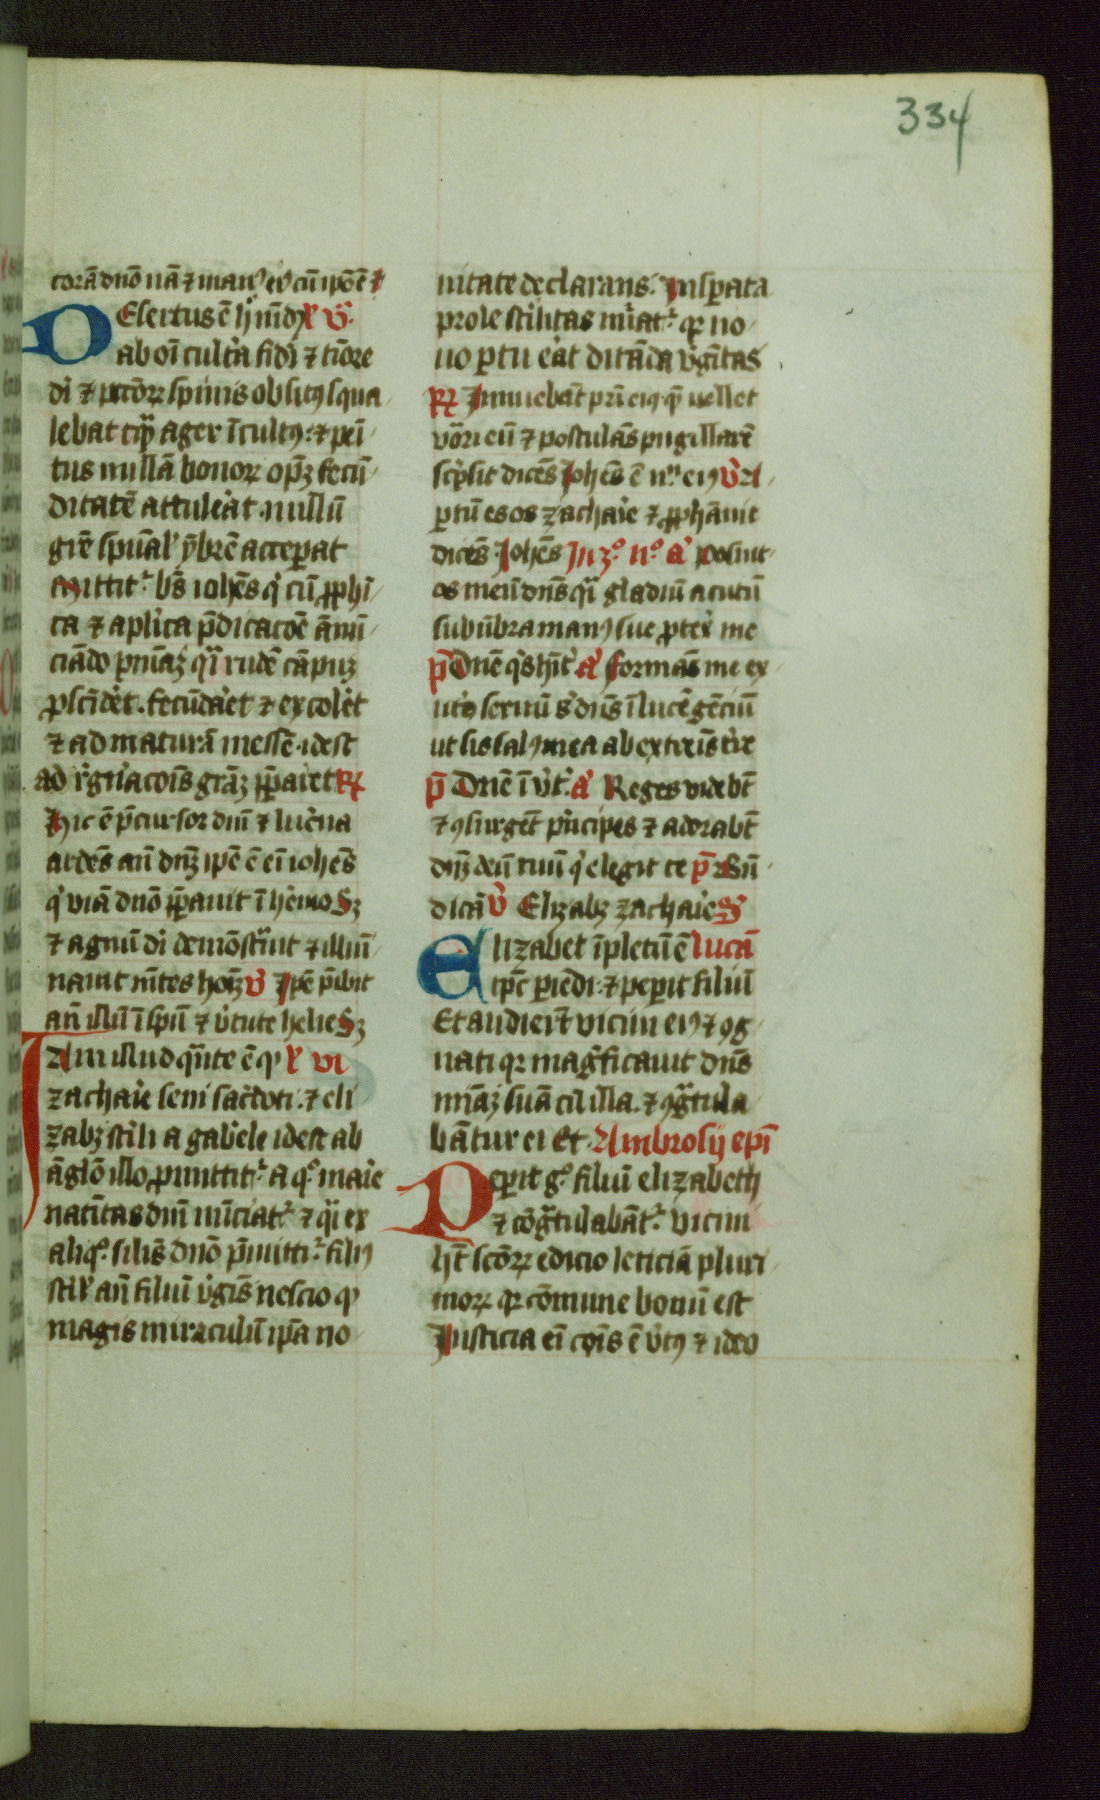 334
corā dnō nā ⁊ man⁹ ei⁹ cū ip̄o ē
Desertus ē hi mūdꝰ V
ab oī cultꝰa fidei ⁊ tiōre
di ⁊ pctōrꝝ spinis obsitꝰ squa
lebat tqͣ ager īcultꝰ ⁊ peī
tus nullā bonorꝝ opꝫ fecū
ditatē attulerat nullū
gr̄e spūal ymbrē acceperat
Mittitᷣ bs̄ ioh̄es qͥ cū ꝓphi
ca ⁊ apl̓ica p̄dicacōe ānū
ciādo pn̄iāꝫ qͣi rudē cāpuꝫ
ꝓscīderet. fecūdaret ⁊ excoleret
⁊ ad maturā messē idest
ad r̓gn̓acōis grāꝫ p̄pararet Rꝫ
Hic ē p̄cursor dnī ⁊ lucerna
ardēs an̄ dnꝫ ip̄e ē eī ioh̄es
qͥ viā dnō p̄parauit ī heremo Sꝫ
⁊ agnū di demōstͣuit ⁊ illuī
nauit mētes hoīꝫ V̓ Ip̄e p̄ibit
an̄ illū ī sp̄ū ⁊ v̓tute helie Sꝫ
Iam illud qͣnte ē qꝫ L̓ vi
zacharie seni sac̓doti. ⁊ eli
zabꝫ st̓ili a gabriele idest ab
āglo illo ꝓmittitᷣ a qͦ marie
natiuitas dnī nūciatᷣ ⁊ qͣi ex
aliqͦ similis dnō p̄mittitᷣ filiꝰ
st̓il̓ an̄ filiū v̓gīs nescio qꝫ
magis miraculū ip̄a no
uitate declarans. Insperata
prole sterilitas mīratᷣ qꝛ no
uo partu erat ditāda v̓gītas
Rꝫ Innuebāt pr̄i eiꝰ qͤ vellet
vocari eū ⁊ postulās pugillarē
scͥpsit dicēs Ioh̄es ē nn̄ eiꝰ V̓ A
pertū ē os zacharie ⁊ ꝓph̄auit
dicēs Ioh̄es In ꝫͦ nͦ a̓ Posuit
os meū dn̄s qͣi gladiū acutū
sub ūbra manꝰ sue ꝓtexit me
p̄ Dn̄e qͥs hīt a̓ formās me ex
ut̓o seruū s̓ dn̄s ī lucē gēciū
ut sis salꝰ mea ab extremis t̓re
p̄ Dn̄e ī v̓t a̓ Reges videbt̄
⁊ ꝯsurgēt prīcipes ⁊ adorabt̄
dnꝫ deū tuū qͥ elegit te p̄ Bn̄
dicā V̓ Elizabꝫ zacharie S̓
Elizabet īpletū ē lucā
tp̄c pariēdi. ⁊ peperit filiū
Et audierūt vicini eiꝰ ⁊ ꝯg
nati qꝛ magͥficauit dn̄s
mīaꝫ suā cū illa. ⁊ ꝯgͣtula
bātur ei Et. Ambrosij epī
Peperit gͦ filiū elizabeth
⁊ cōgͣtulabātᷣ vicini
hꝫ scōrꝝ edicio leticiā pluri
morꝝ qꝛ cōmune bonū est
Iusticia eī cōis ē v̓tꝰ ⁊ ideo